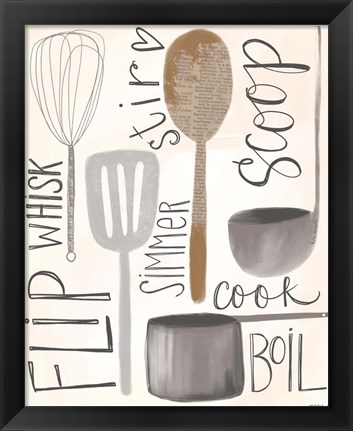 stir
scoop
WHISK
SIMMER
FLIP
cook
BOIL